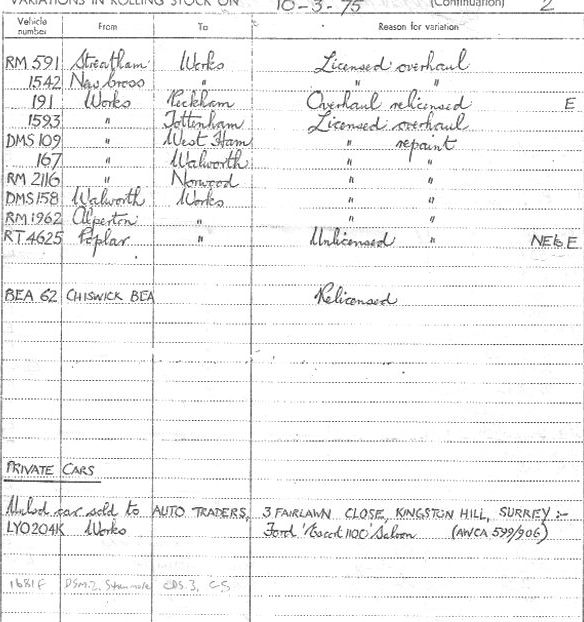 VARIATIONS IN ROLLING STOCK ON 10-3-75 (Continuation) 2
Vehicle number From To Reason for variation
RM 591 Streatham Works Licensed overhaul
1542 New Cross " " "
191 Works Peckham Overhaul relicensed E
1593 " Tottenham Licensed overhaul
DMS 109 " West Ham " repaint
167 " Walworth " "
RM 2116 " Norwood " "
DMS 158 Walworth Works " "
RM 1962 Alperton " " "
RT 4625 Poplar " Unlicensed " E
BEA 62 CHISWICK BEA Relicensed
PRIVATE CARS
car sold to AUTO TRADERS, 3 FAIRLAWN CLOSE, KINGSTON HILL, SURREY :-
LYO204K Works Ford 'Escort 1100' Saloon (AWCA 599/906)
1681F DSM.2, CDS.3, CS